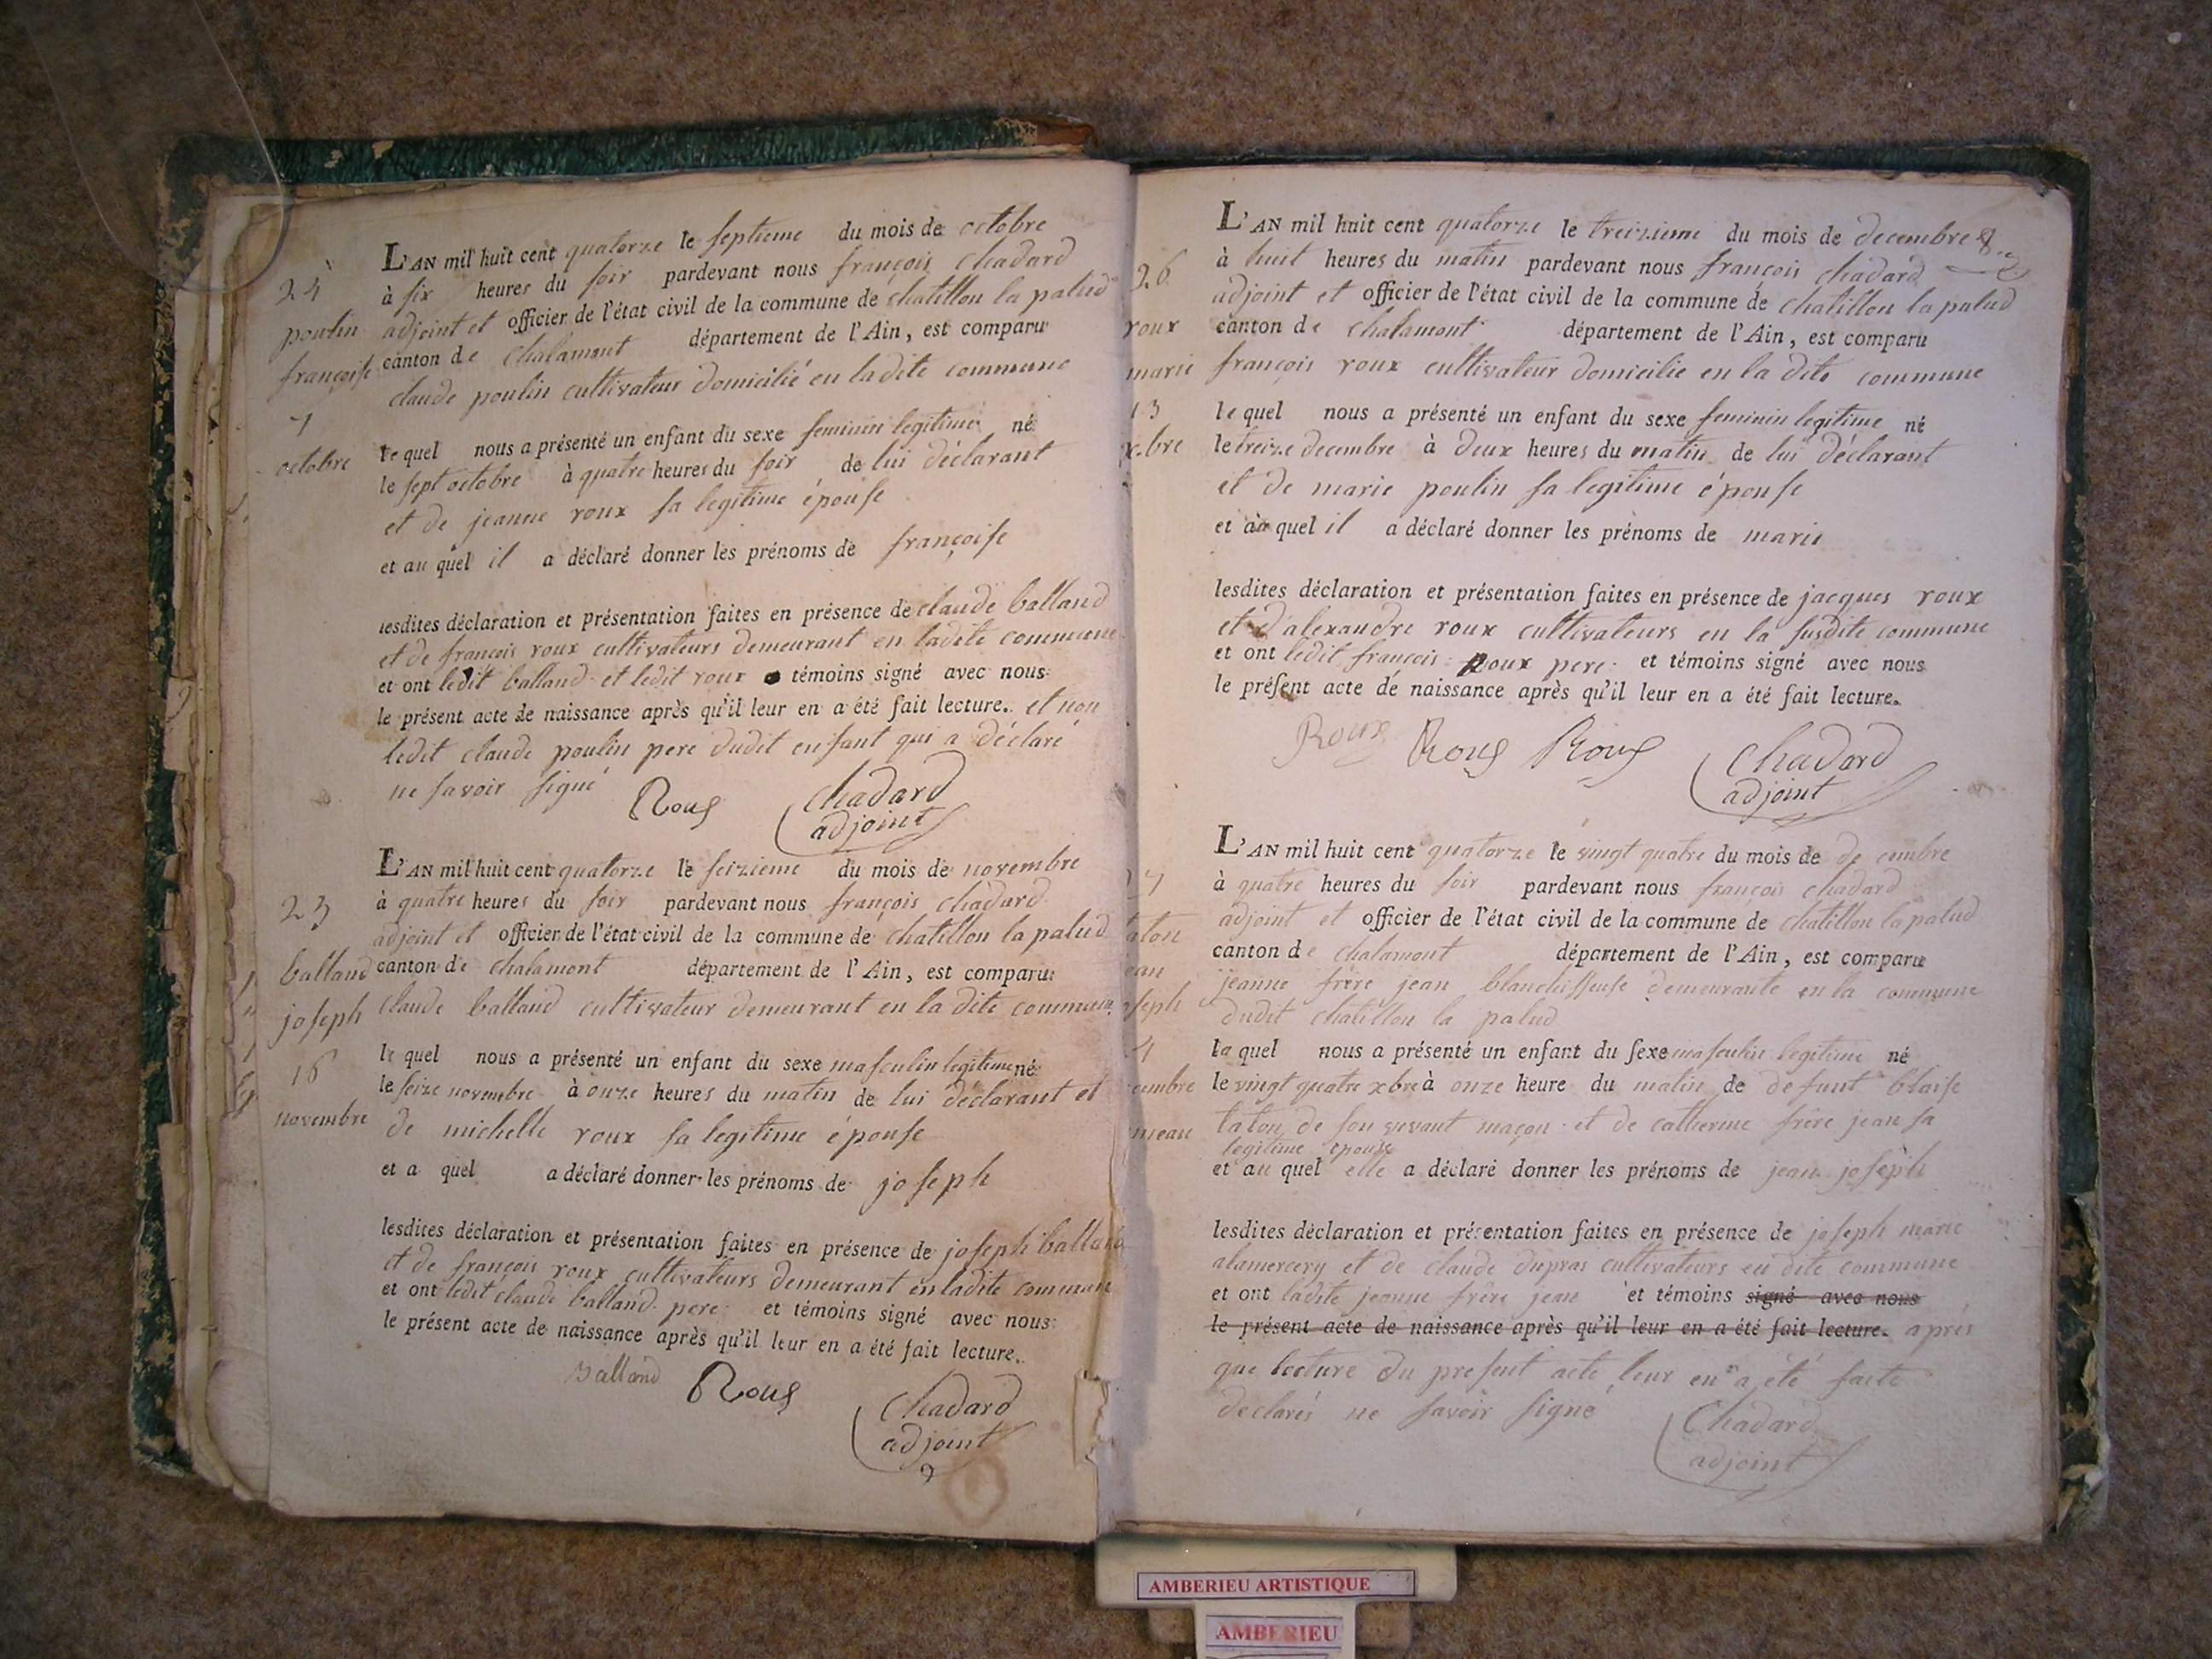 24
poulin
françoise
7
octobre
L'AN mil huit cent quatorze le septieme du mois de octobre
à six heures du soir pardevant nous françois chadard
adjoint et officier de l'état civil de la commune de chatillon la palud
canton de chalamont département de l'Ain, est comparu
claude poulin cultivateur domicilié en ladite commune
le quel nous a présenté un enfant du sexe feminin legitime né
le sept octobre à quatre heures du soir de lui déclarant
et de jeanne roux sa legitime épouse
et au quel il a déclaré donner les prénoms de françoise
lesdites déclaration et présentation faites en présence de claude balland
et de francois roux cultivateurs demeurant en ladite commune
et ont ledit balland et ledit roux témoins signé avec nous
le présent acte de naissance après qu'il leur en a été fait lecture. et non
ledit claude poulin pere dudit enfant qui a déclaré
ne savoir signé
Roux
Chadard
adjoint
25
balland
joseph
16
novembre
L'AN mil huit cent quatorze le seizieme du mois de novembre
à quatre heures du soir pardevant nous françois chadard
adjoint et officier de l'état civil de la commune de chatillon la palud
canton de chalamont département de l'Ain, est comparu
claude balland cultivateur demeurant en la dite commune
le quel nous a présenté un enfant du sexe masculin legitime né
le seize novembre à onze heures du matin de lui déclarant et
de michelle roux sa legitime épouse
et a quel a déclaré donner les prénoms de joseph
lesdites déclaration et présentation faites en présence de joseph balland
et de françois roux cultivateurs demeurant en ladite commune
et ont ledit claude balland pere et témoins signé avec nous
le présent acte de naissance après qu'il leur en a été fait lecture.
Balland Roux
Chadard
adjoint
26
roux
marie
13
xbre
L'AN mil huit cent quatorze le treizieme du mois de decembre
à huit heures du matin pardevant nous françois chadard
adjoint et officier de l'état civil de la commune de chatillon la palud
canton de chalamont département de l'Ain, est comparu
françois roux cultivateur domicilie en la dite commune
le quel nous a présenté un enfant du sexe feminin legitime né
le treize decembre à deux heures du matin de lui déclarant
et de marie poulin sa legitime épouse
et au quel il a déclaré donner les prénoms de marie
lesdites déclaration et présentation faites en présence de jacques roux
et d'alexandre roux cultivateurs en la susdite commune
et ont ledit françois roux pere et témoins signé avec nous
le présent acte de naissance après qu'il leur en a été fait lecture.
Roux Roux Roux
Chadard
adjoint
L'AN mil huit cent quatorze le vingt quatre du mois de decembre
à quatre heures du soir pardevant nous françois chadard
adjoint et officier de l'état civil de la commune de chatillon la palud
canton de chalamont département de l'Ain, est comparu
jeanne frère jean blanchisseuse demeurante en la commune
dudit chatillon la palud
la quel nous a présenté un enfant du sexe masculin legitime né
le vingt quatre xbre à onze heure du matin de defunt blaise
talon, de son vivant maçon et de catherine frère jean sa
legitime epouse
et au quel elle a déclaré donner les prénoms de jean joseph
lesdites déclaration et présentation faites en présence de joseph marie
alamercery et de claude dupras cultivateurs en dite commune
et ont ladite jeanne frère jean et témoins signé avec nous
le présent acte de naissance après qu'il leur en a été fait lecture. après
que lecture du present acte leur en a été faite
declarés ne savoir signé
Chadard
adjoint
AMBERIEU ARTISTIQUE
AMBERIEU